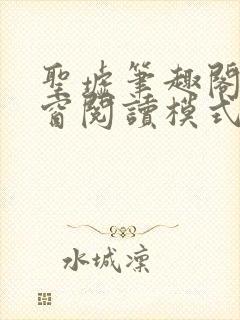 聖墟筆趣閣
窗閱讀模式
水城凜